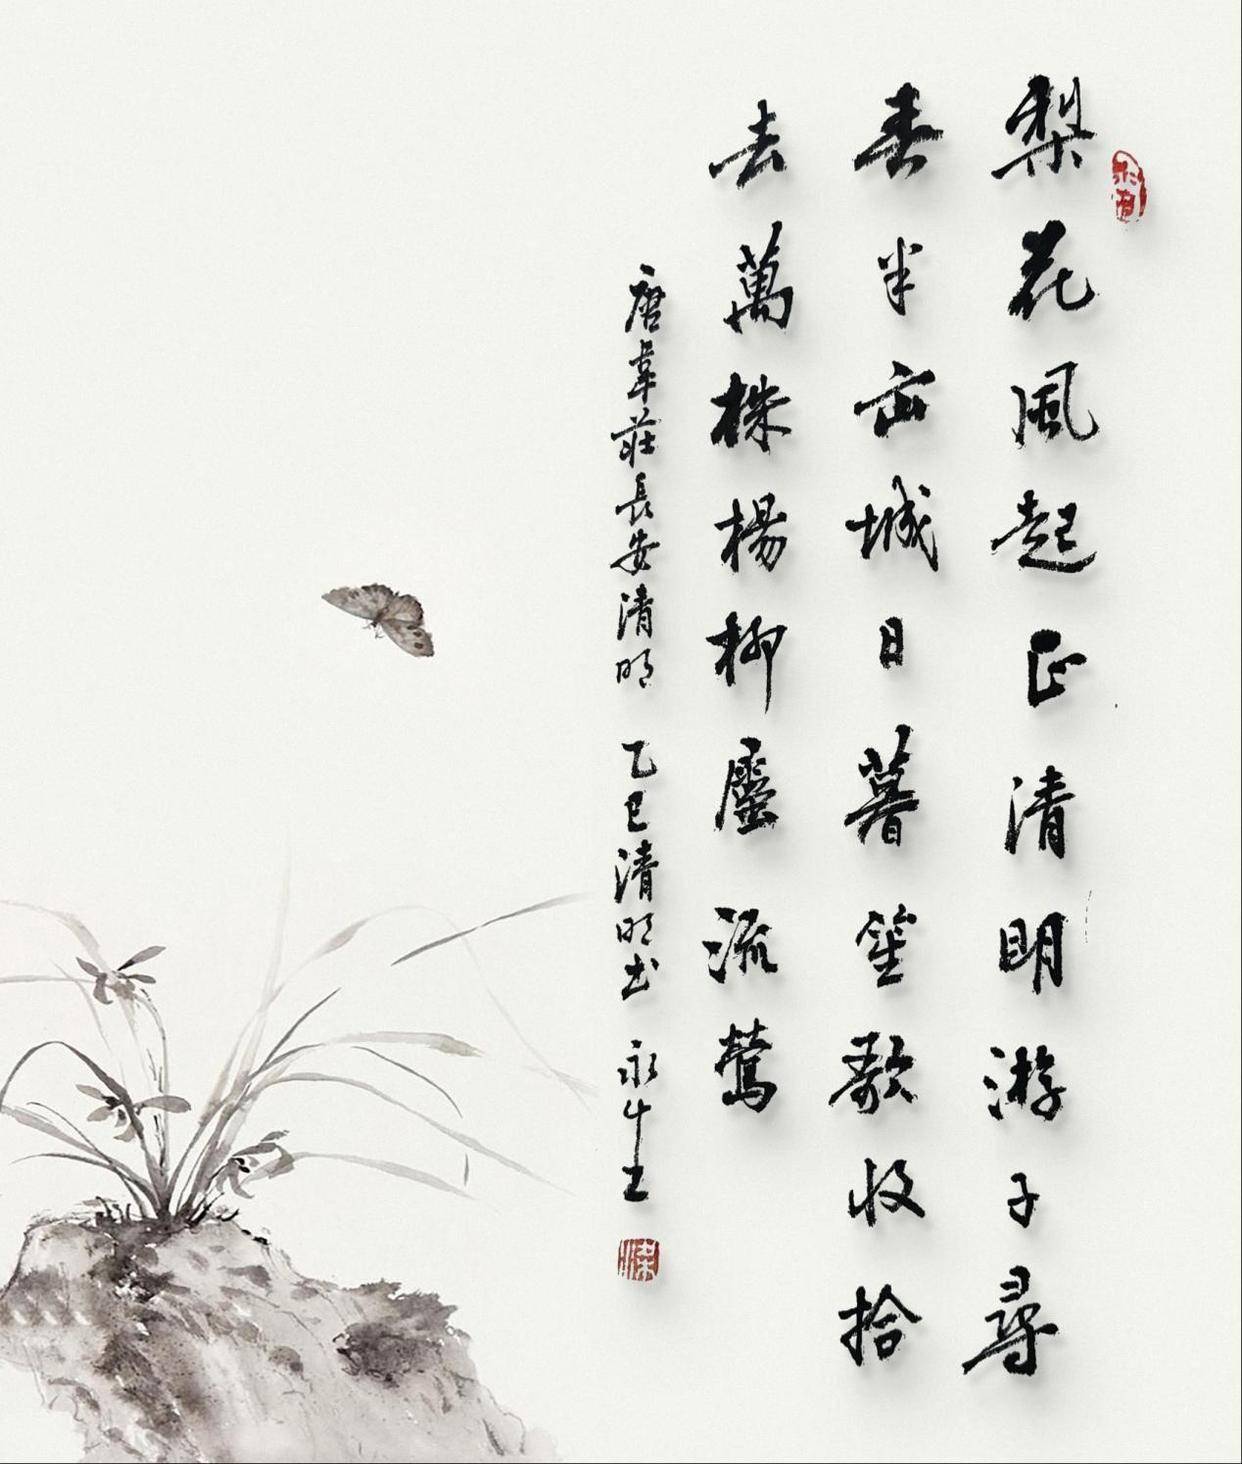 梨花風起正清明游子尋
春半出城日暮笙歌收拾
去萬株楊柳屬流鶯
唐韋莊長安清明 乙巳清明书 永